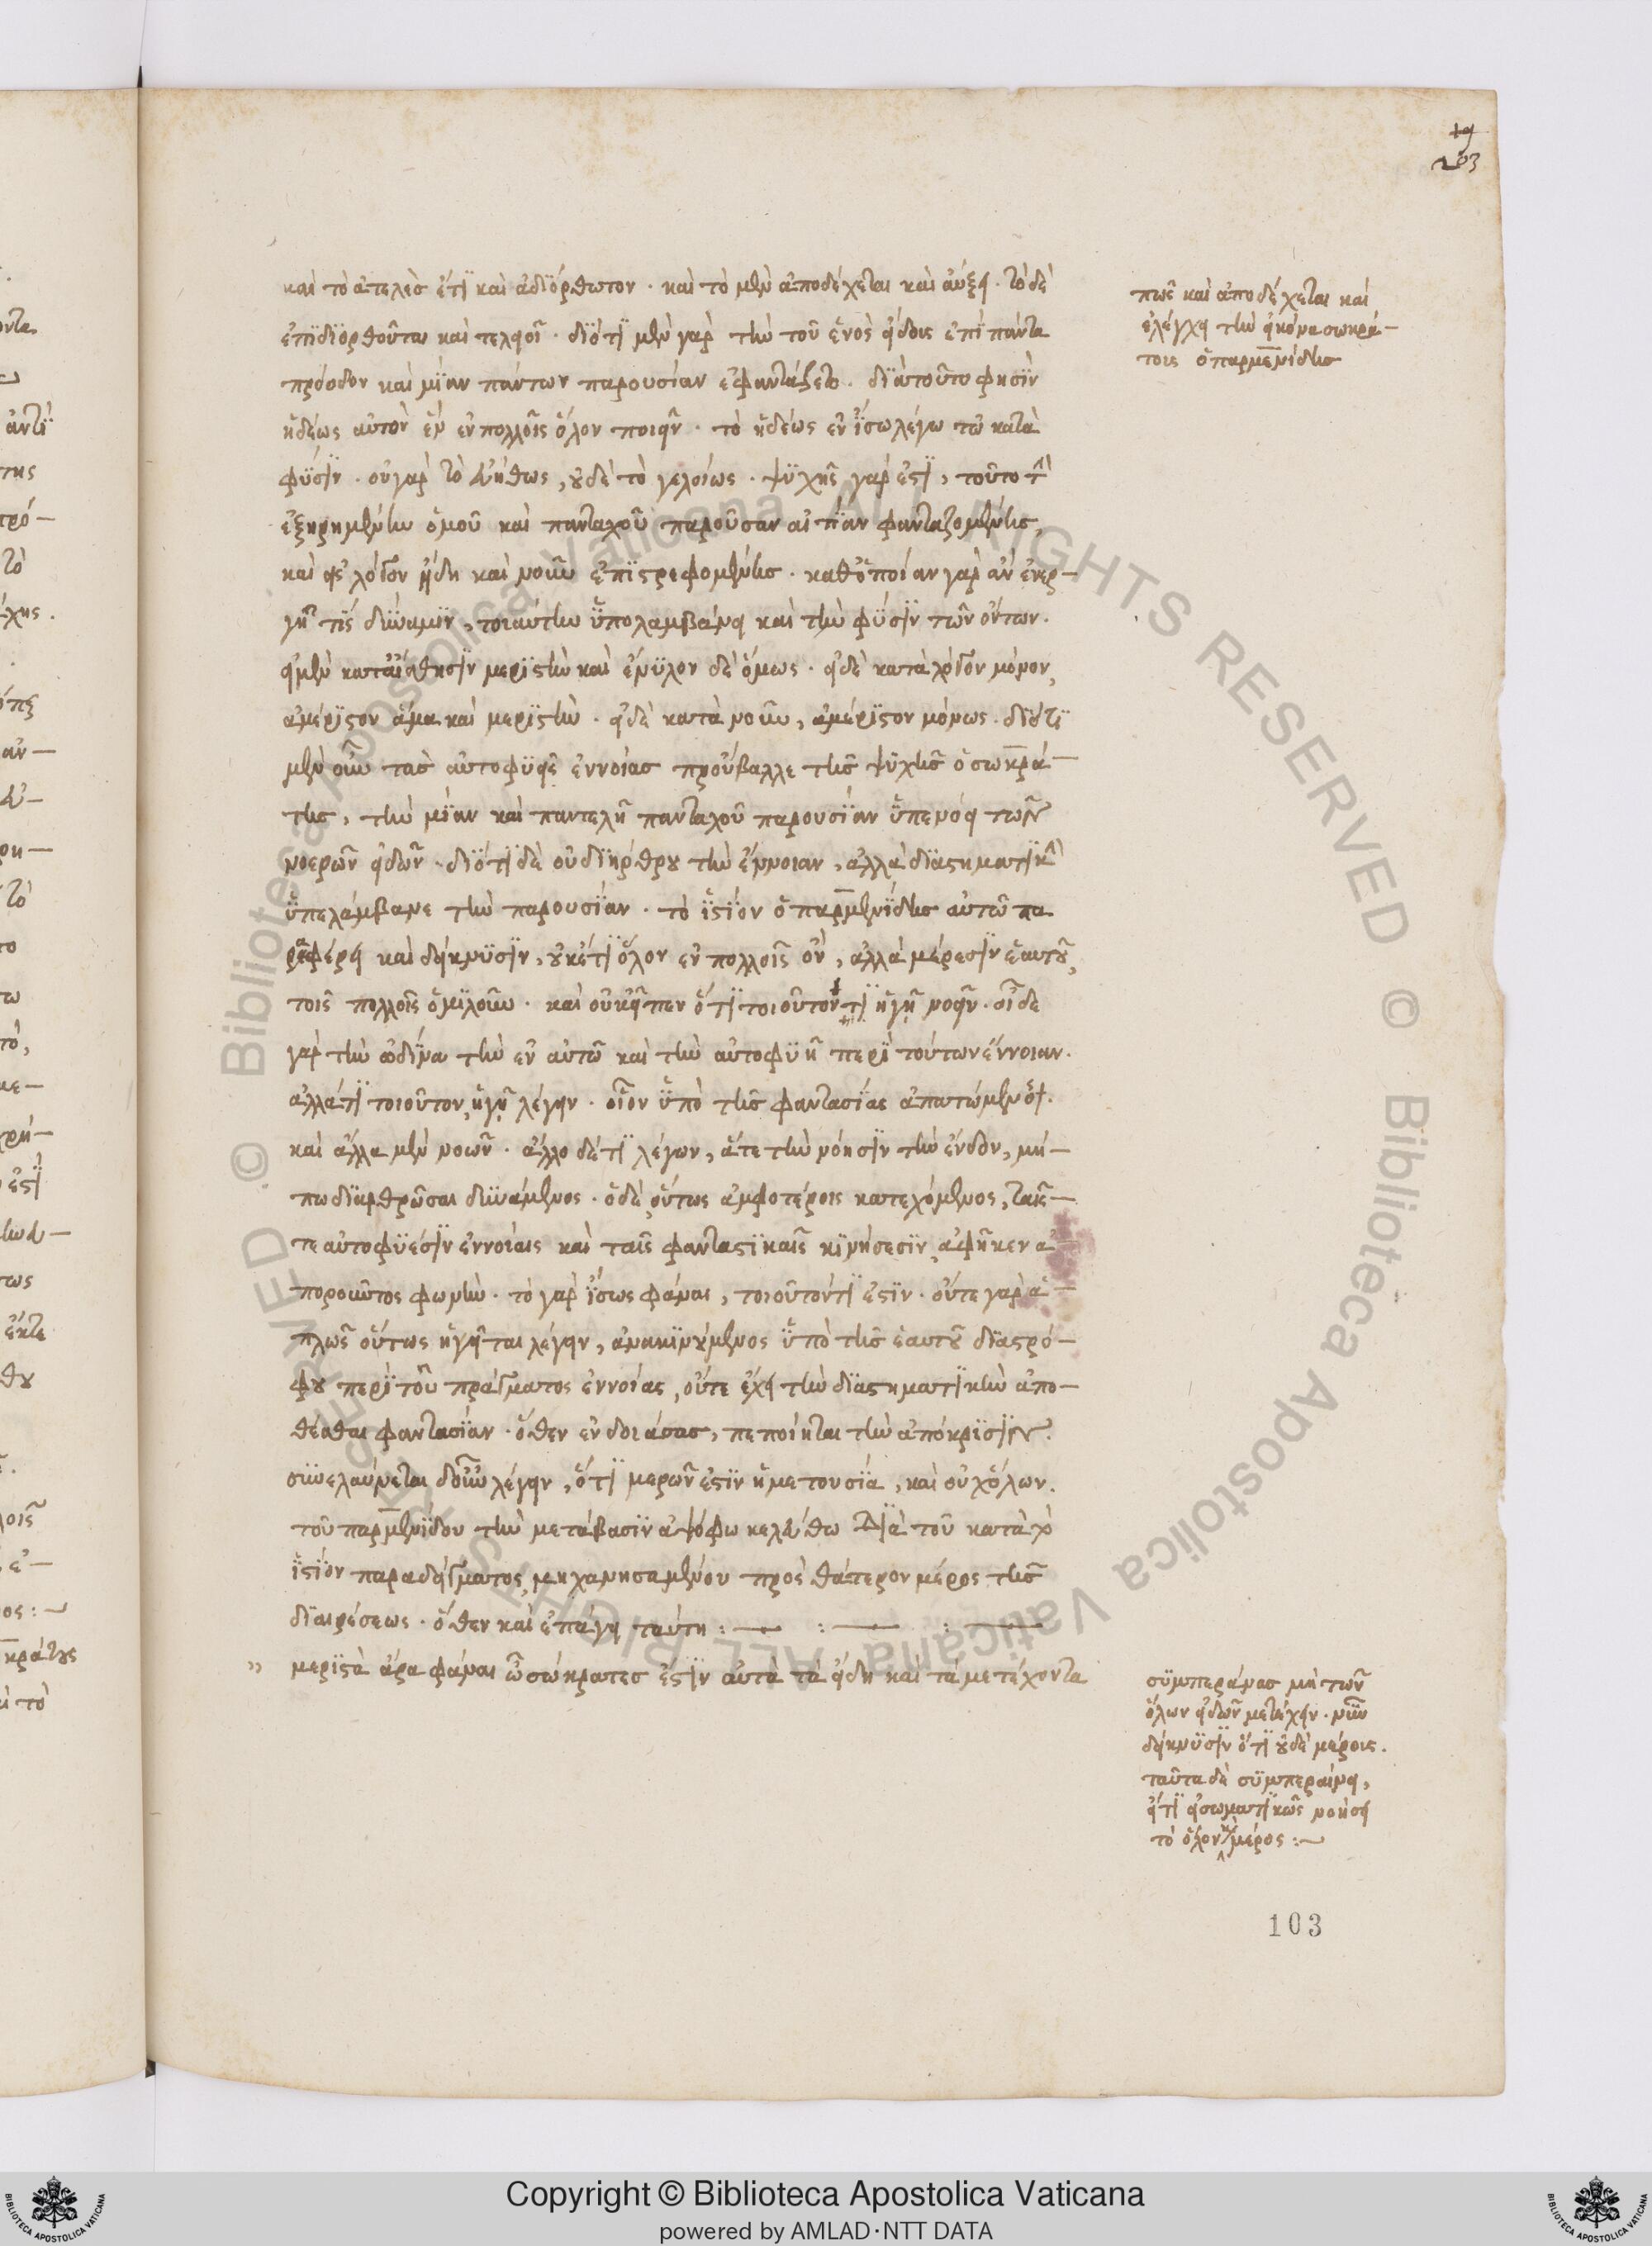 19
203
καὶ τὸ ἀτελὲς ἔτι καὶ ἀδιόρθωτον · καὶ τὸ μὲν ἀποδέχεται καὶ αὔξει · τὸ δὲ
ἐπιδιορθοῦται καὶ τελειοῖ · διότι μὲν γὰρ τὴν τοῦ ἑνὸς εἴδους ἐπὶ πάντα
πρόοδον καὶ μίαν πάντων παρουσίαν ἐφαντάζετο · διὰ τοῦτο φησὶν
ἡδέως αὐτὸν ἓν ἐν πολλοῖς ὅλον ποιεῖν · τὸ ἡδέως ἐν ἴσω λέγω τῶ κατὰ
φύσιν · οὐ γὰρ τὸ εὐήθως, οὐδὲ τὸ γελοίως · ψυχῆς γάρ ἐστι, τοῦτο τὴν
ἐξηρημένην ὁμοῦ καὶ πανταχοῦ παροῦσαν αἰτίαν φανταζομένης,
καὶ εἰς λόγον ἤδη καὶ νοῦν ἐπιστρεφομένης · καθ' ὁποίαν γὰρ ἂν ἐνερ-
γῆ τίς δύναμιν, τοιαύτην ὑπολαμβάνει καὶ τὴν φύσιν τῶν ὄντων ·
εἰ μὲν κατ' αἴσθησιν μεριστὴν καὶ ἔνυλον δὲ ὅμως · εἰ δὲ κατὰ λόγον μόνον,
ἀμέριστον ἅμα καὶ μεριστὴν · εἰ δὲ κατὰ νοῦν, ἀμέριστον μόνως · διότι
μὲν οὖν τὰς αὐτοφυεῖς ἐννοίας προὔβαλλε τῆς ψυχῆς ὁ σωκρά-
της, τὴν μίαν καὶ παντελῆ πανταχοῦ παρουσίαν ὑπενόει τῶν
νοερῶν εἰδῶν · διότι δὲ οὐ διήρθρου τὴν ἔννοιαν, ἀλλὰ διαστηματικὴν
ὑπελάμβανε τὴν παρουσίαν · τὸ ἱστίον ὁ παρμενίδης αὐτῶ πα
ραφέρει καὶ δείκνυσιν, οὐκέτι ὅλον ἐν πολλοῖς ὂν, ἀλλὰ μέρεσιν ἑαυτοῦ,
τοῖς πολλοῖς ὁμιλοῦν · καὶ οὐκ εἶπεν ὅτι τοιοῦτόν τι ἡγῆ νοεῖν · οἶδε
γὰρ τὴν ὠδῖνα τὴν ἐν αὐτῶ καὶ τὴν αὐτοφυῆ περὶ τούτων ἔννοιαν ·
ἀλλά τι τοιοῦτον, ἡγῆ λέγειν · οἷον ὑπὸ τῆς φαντασίας ἀπατώμενος ·
καὶ ἄλλα μὲν νοῶν · ἄλλο δέ τι λέγων, ἅτε τὴν νόησιν τὴν ἔνδον, μή-
πω διαρθρῶσαι δυνάμενος · ὁ δὲ, οὕτως ἀμφοτέροις κατεχόμενος, ταῖς
τε αὐτοφυέσιν ἐννοίαις καὶ ταῖς φαντασικαῖς κινήσεσιν, ἀφῆκεν ἀ-
ποροῦντος φωνὴν · τὸ γὰρ ἴσως φάναι, τοιοῦτόν τί ἐστιν · οὔτε γὰρ ἁ-
πλῶς οὕτως ἡγεῖται λέγειν, ἀνακινούμενος ὑπὸ τῆς ἑαυτοῦ διαστρό-
φου περὶ τοῦ πράγματος ἐννοίας, οὔτε ἔχει τὴν διαστηματικὴν ἀπο-
θέσθαι φαντασίαν · ὅθεν ἐνδοιάσας, πεποίηται τὴν ἀπόκρισιν.
συνελαύνεται δ' οὖν λέγειν, ὅτι μερῶν ἐστὶν ἡ μετουσία, καὶ οὐχ ὅλων.
τοῦ παρμενίδου τὴν μετάβασιν ἀψόφω κελεύθω διὰ τοῦ κατὰ τὸ
ἱστίον παραδείγματος, μηχανησαμένου πρὸς θάτερον μέρος τῆς
διαιρέσεως · ὅθεν καὶ ἐπάγει ταύτη :— :— :—
" μεριστὰ ἄρα φάναι ὦ σώκρατες ἔστιν αὐτὰ τὰ εἴδη καὶ τὰ μετέχοντα
πῶς καὶ ἀποδέχεται καὶ
ἐλέγχει τὴν εἰκόνα σωκρά-
τους ὁ παρμενίδης
συμπεράνας μὴ τῶν
ὅλων εἰδῶν μετέχειν · νῦν
δείκνυσιν ὅτι οὐδὲ μέρους.
ταῦτα δὲ συμπεραίνει,
εἴ τι σωματικῶς νοήσει
τὸ ὅλον καὶ μέρος :—
103
Copyright © Biblioteca Apostolica Vaticana
powered by AMLAD·NTT DATA